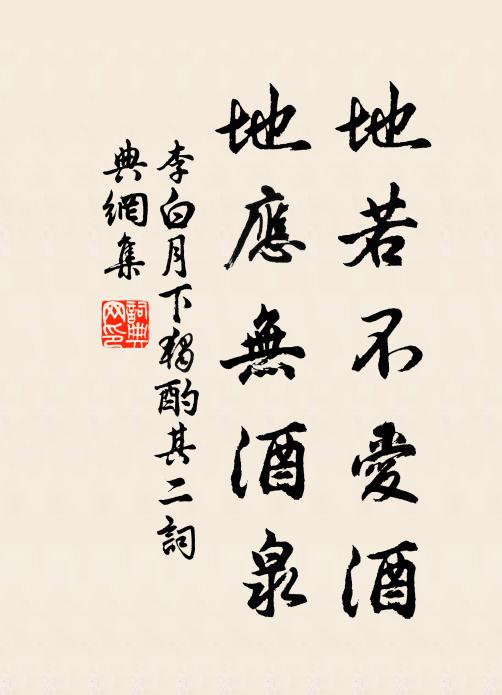 地若不愛酒
地應無酒泉
李白月下獨酌其二詞
典網集
詞典網印